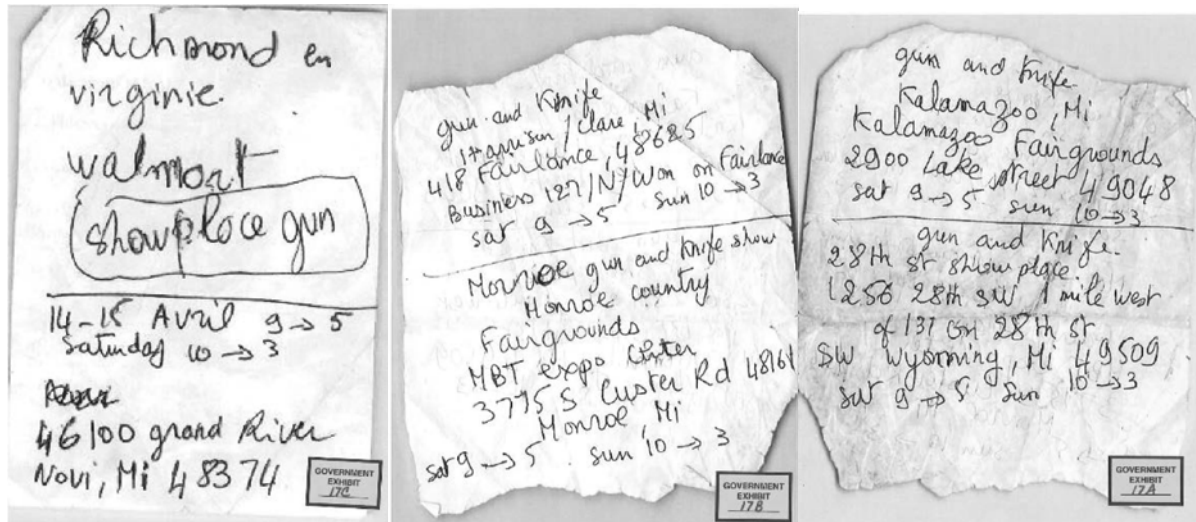 Richmond en
virginie.
walmart
show place gun
14-15 Avril 9→5
Saturday 10→3
46100 grand River
Novi, Mi 48374
GOVERNMENT
EXHIBIT
17C
gun and Knife
Harrison / Clare, Mi
418 Fairlance, 48685
Business 127/N/Won on Fairlance
sat 9→5 sun 10→3
Monroe gun and Knife show
Monroe country
Fairgrounds
MBT expo Center
3775 S Custer Rd 48161
Monroe Mi
sat 9→5 sun 10→3
GOVERNMENT
EXHIBIT
17B
gun and Knife
Kalamazoo, Mi
Kalamazoo Fairgrounds
2900 Lake street 49048
sat 9→5 sun 10→3
gun and Knife.
28th st show place
1256 28th SW 1 mile west
of 131 on 28th st
SW Wyorming, Mi 49509
sat 9→5 sun 10→3
GOVERNMENT
EXHIBIT
17A